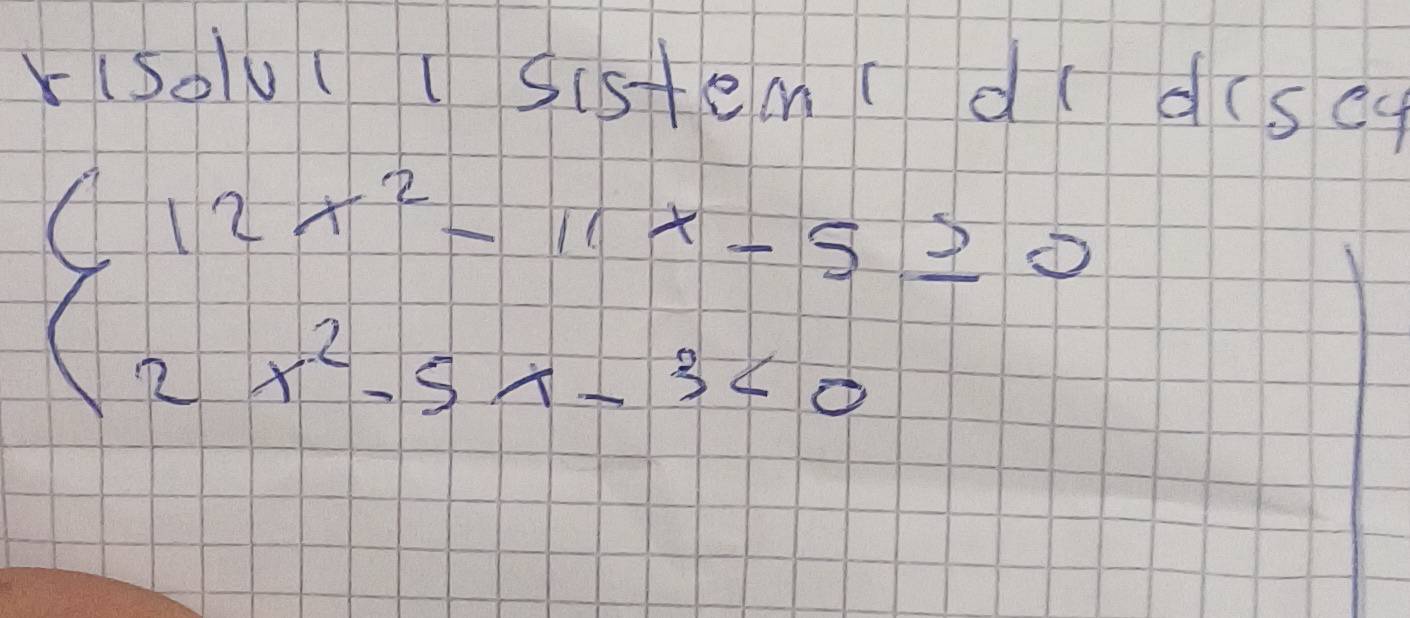 risolvi i sistemi di diseq
{ 12x² - 11x - 5 ≥ 0
2x² - 5x - 3 < 0